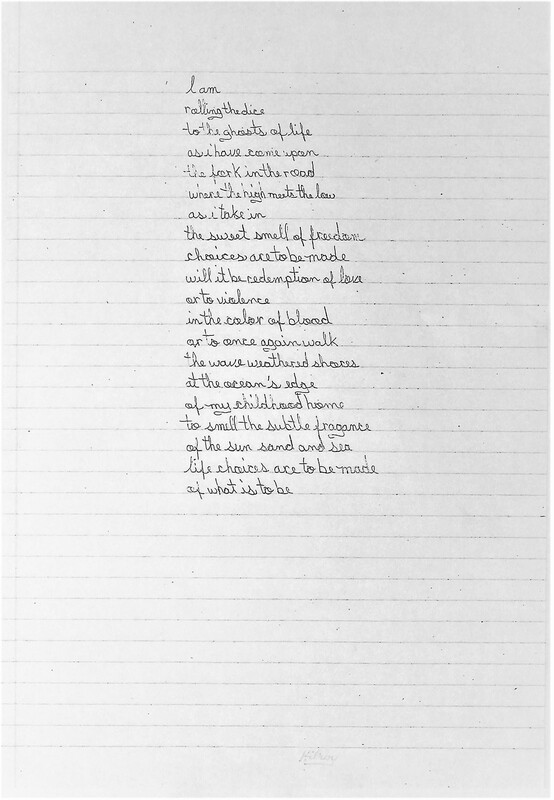 I am
rolling the dice
to the ghosts of life
as i have come upon
the fork in the road
where the high meets the low
as i take in
the sweet smell of freedom
choices are to be made
will it be redemption of love
or to violence
in the color of blood
or to once again walk
the wave weathered shores
at the ocean's edge
of my childhood home
to smell the subtle fragance
of the sun sand and sea
life choices are to be made
of what is to be